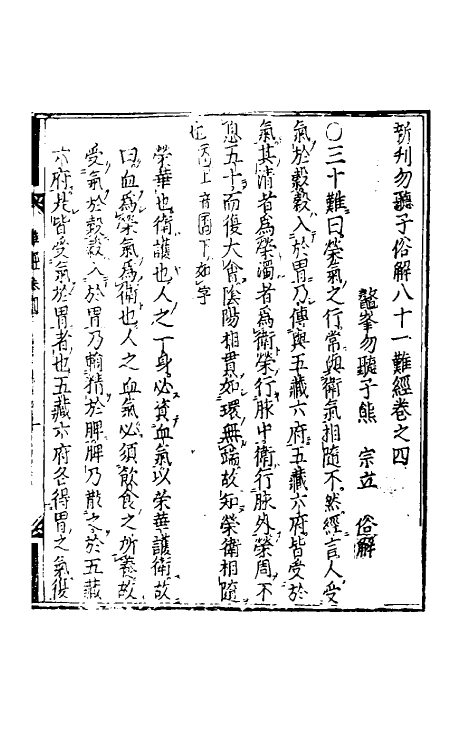 新刊勿聽子俗解八十一難經卷之四
鼇峯勿聽子熊 宗立 俗解
○三十難曰榮氣之行常與衛氣相隨不然經言人受
氣於穀穀入於胃乃傳與五藏六府五藏六府皆受於
氣其清者爲榮濁者爲衛榮行脉中衛行脉外榮周不
息五十而復大會陰陽相貫如環無端故知榮衛相隨
也
榮華也衛護也人之一身必資血氣以榮華護衛故
曰血爲榮氣爲衛也人之血氣必須飲食之所養故
受氣於穀穀入於胃乃輸精於脾脾乃散之於五藏
六府共皆受氣於胃者也五藏六府各得胃之氣後